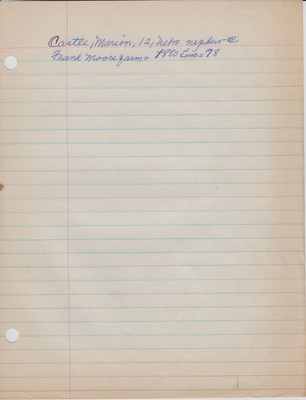 Castle, Marion, 12, Neb. nephew @
Frank Moore farm 1880 Cens 78